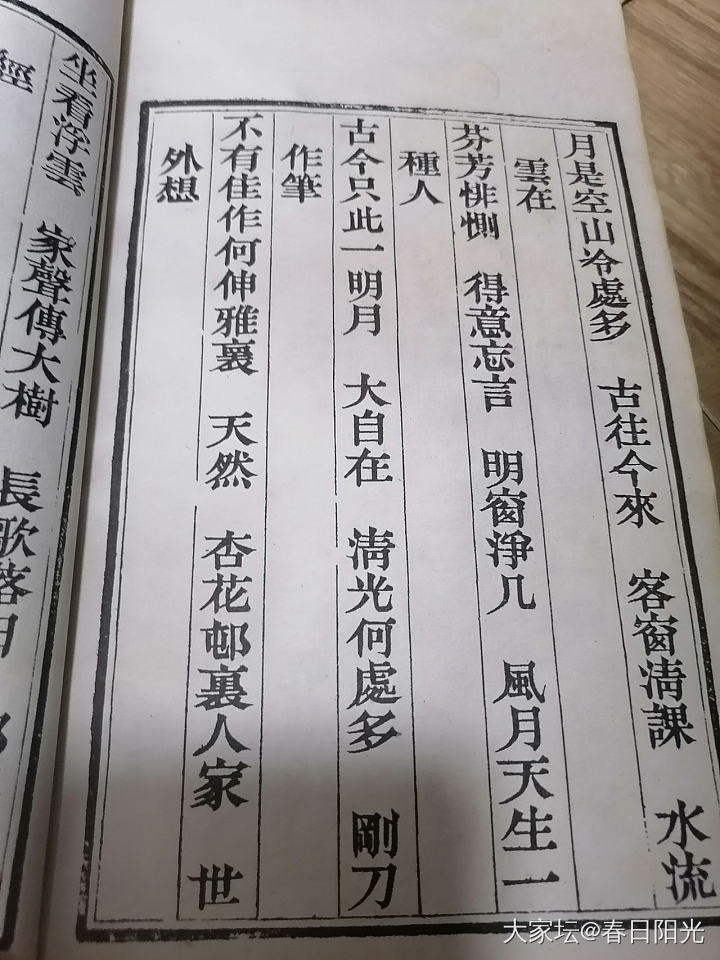 月是空山冷處多 古往今來 客窗清課 水流
雲在
芬芳悱惻 得意忘言 明窗淨几 風月天生一
種人
古今只此一明月 大自在 清光何處多 剛刀
作筆
不有佳作何伸雅裏 天然 杏花邨裏人家 世
外想
坐看浮雲 家聲傳大樹 長歌落日
經
大家坛@春日阳光